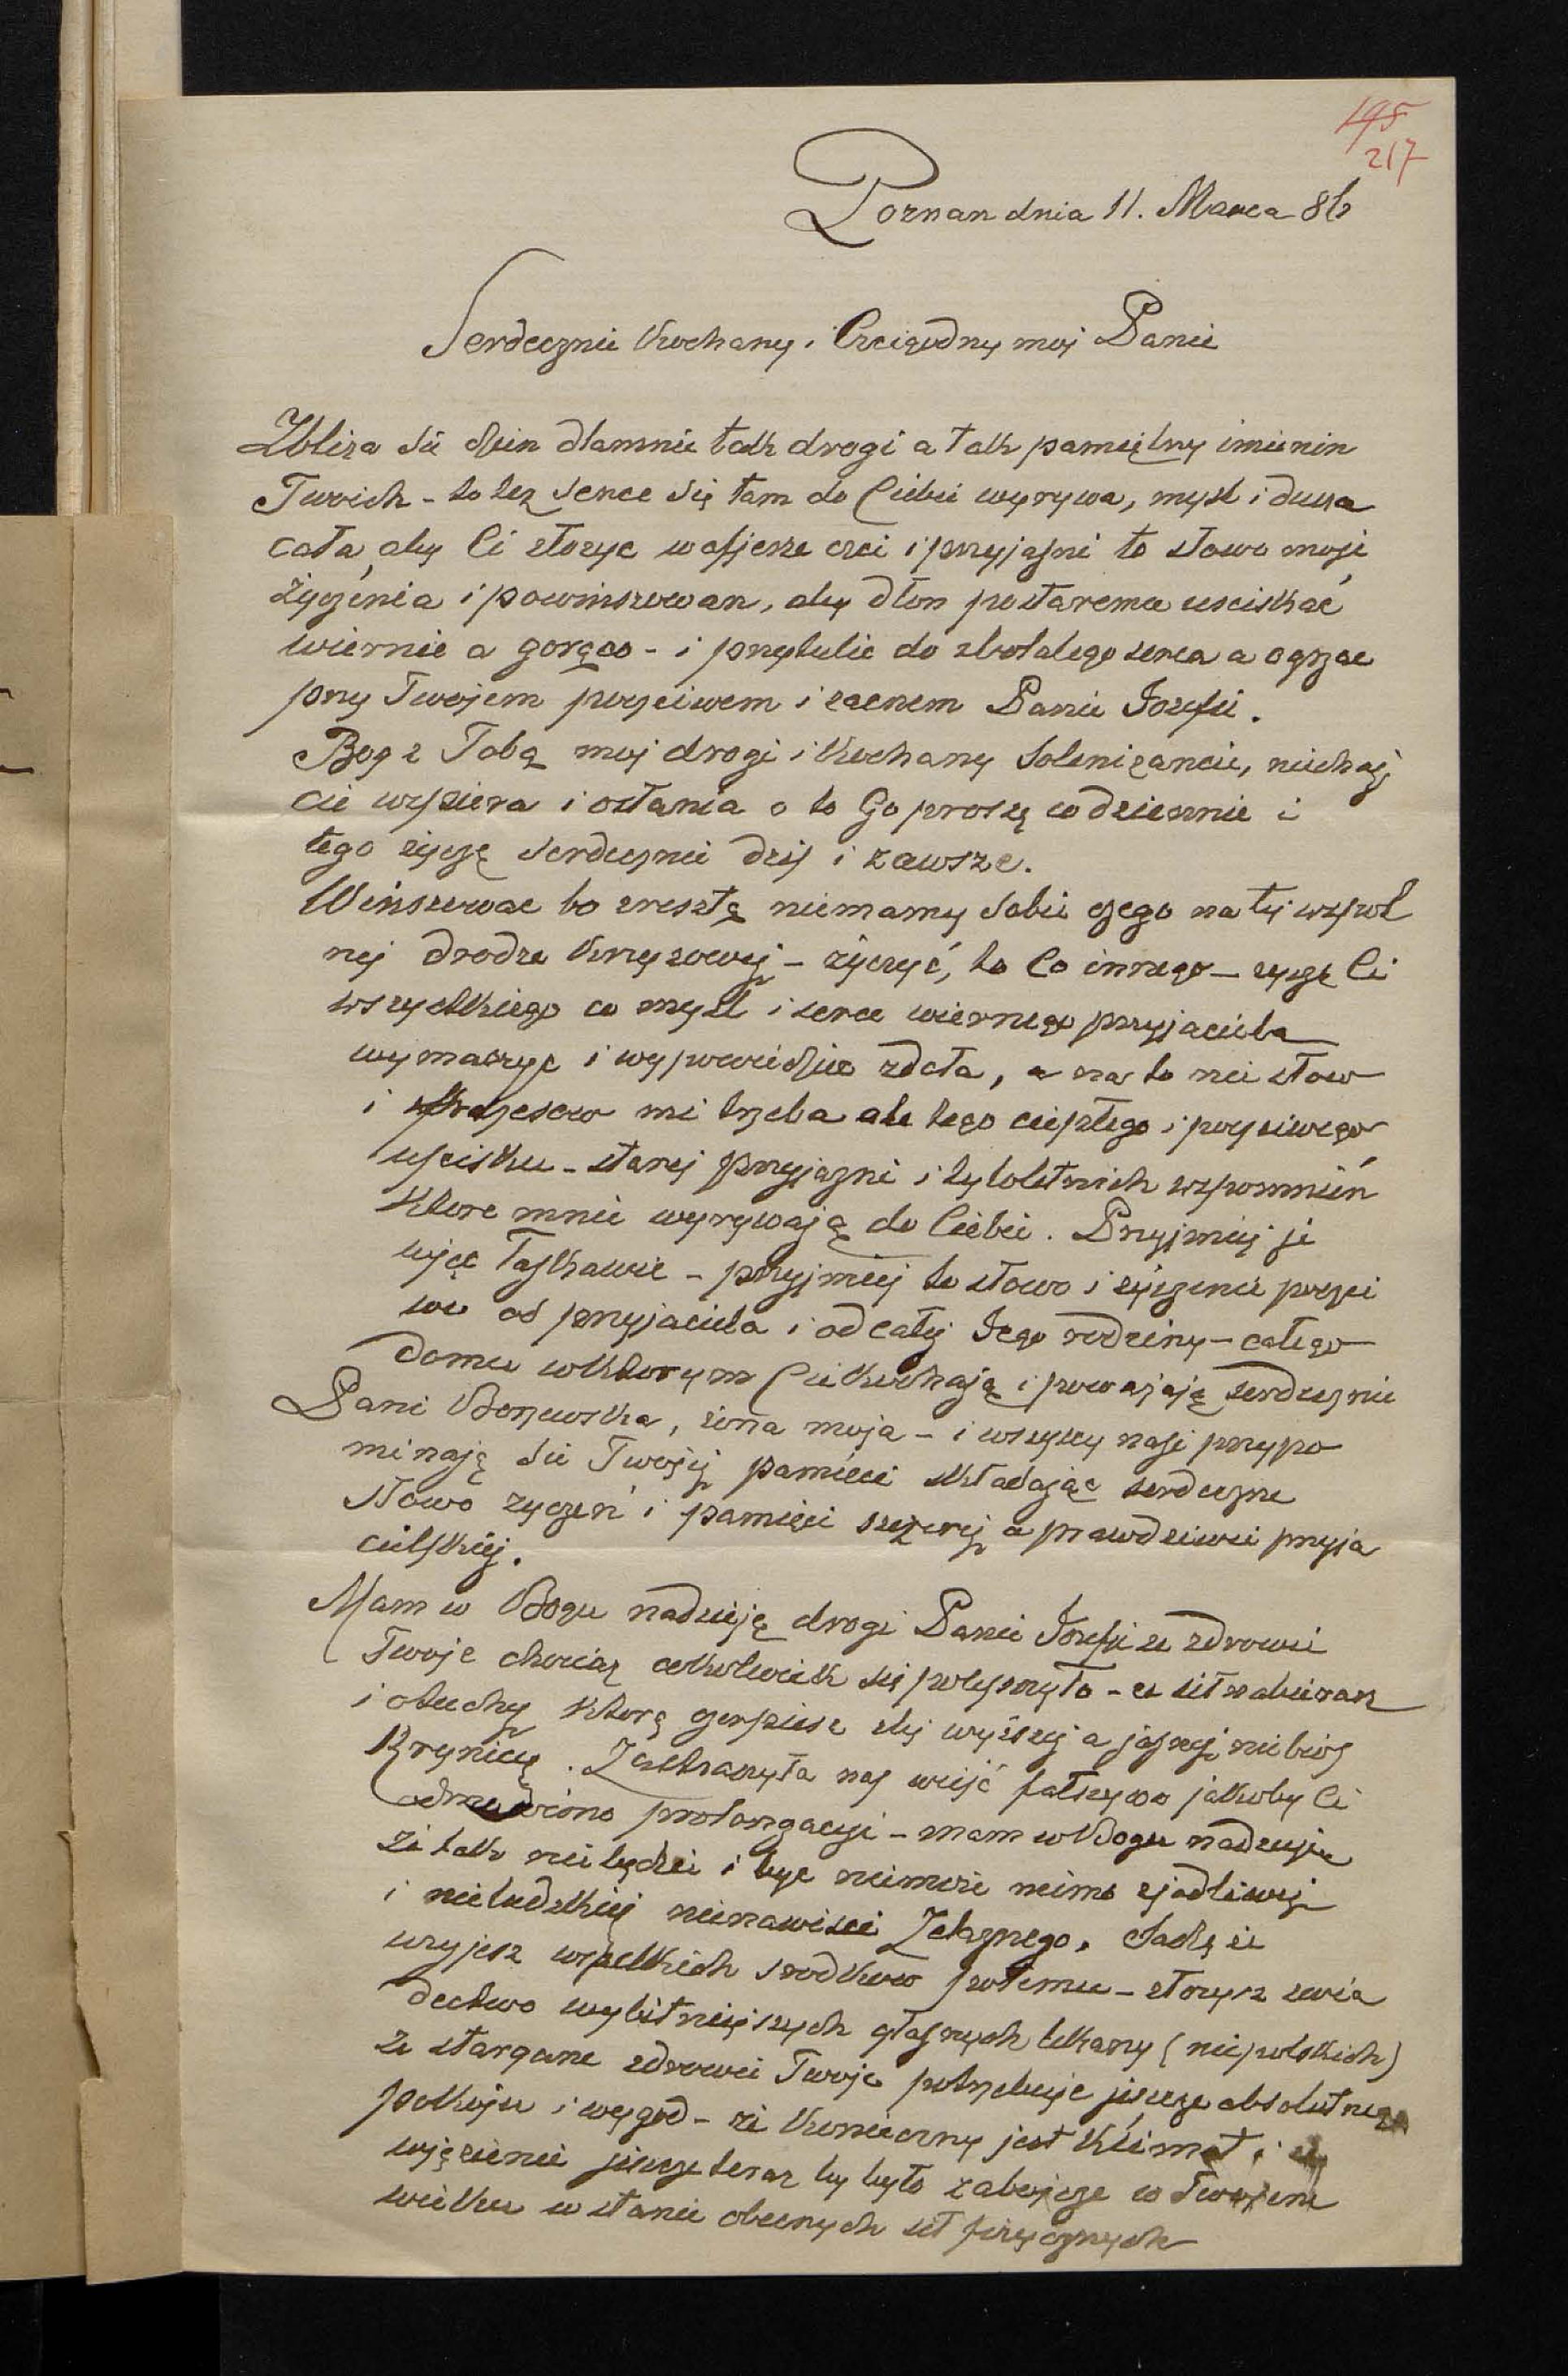 195
217
Poznan dnia 11. Marca 86
Serdecznie Kochany i Czcigodny moj Panie
Zbliza sie dzien dlamnie tak drogi a tak pamiętny imienin
Twoich - to tez serce się tam do Ciebie wyrywa, mysl i dusza
cała, aby Ci złozyc w ofierze czci i przyjazni to słowo moje
życzenia i powinszowan, aby dłon postaremu usciskać
wiernie a gorąco - i przytulic do zbolalego serca a ogrzac
przy Twojem poczciwem i zacnem Panie Jozefie.
Bog z Tobą moj drogi i Kochany Solenizancie, niechaj
cie wspiera i osłania o to Go proszę codziennie i
tego zyczę serdecznie dzis i zawsze.
Winszowac bo zresztą niemamy sobie czego na tej wspol
nej drodze Krzyzowej - życzyć, to Co innego - zyczę Ci
wszystkiego co mysl i serce wiernego przyjaciela
wymarzyc i wypowiedziec zdoła, a na to nie słow
i frazesow mi trzeba ale tego ciepłego i poczciwego
uscisku - starej przyjazni i tyloletnich wspomnień
Ktore mnie wyrywają do Ciebie. Przyjmij je
więc łaskawie - przyjmij to słowo i życzenie poczci
we od przyjaciela i od całej Jego rodziny - całego
domu w Ktorym Cie Kochają i powazają serdecznie
Pani , zona moja - i wszyscy nasi przypo
minają sie Twojej pamieci składając serdeczne
słowo zyczeń i pamięci szczerej a prawdziwei przyja
cielskiej.
Mam w Bogu nadzieję drogi Panie Jozefie ze zdrowie
Twoje chociaz cokolwiek się polepszyło - ze sił nabierasz
i otuchy Ktorą czerpiesz z tej wyższej a jasnej niebios
Krynicy. Zastraszyła nas wieść fałszywa jakoby Ci
odmowiono prolongacyi - mam w Bogu nadzieje
ze tak nie będzie i byc niemoze mimo zjadliwej
i nieludzkiej nienawisci Zelaznego. Sadzę ze
uzyjesz wszelkich srodkow potemu - złozysz swia
dectwo wybitniejszych głosnych lekarzy (nie polskich)
ze stargane zdrowie Twoje potrzebuje jeszcze absolutnego
pokoju i wygod - ze Konieczny jest Klimat i ze
więzienie jeszcze teraz by było zabojcze w Twojem
wieku w stanie obecnych sił fizycznych